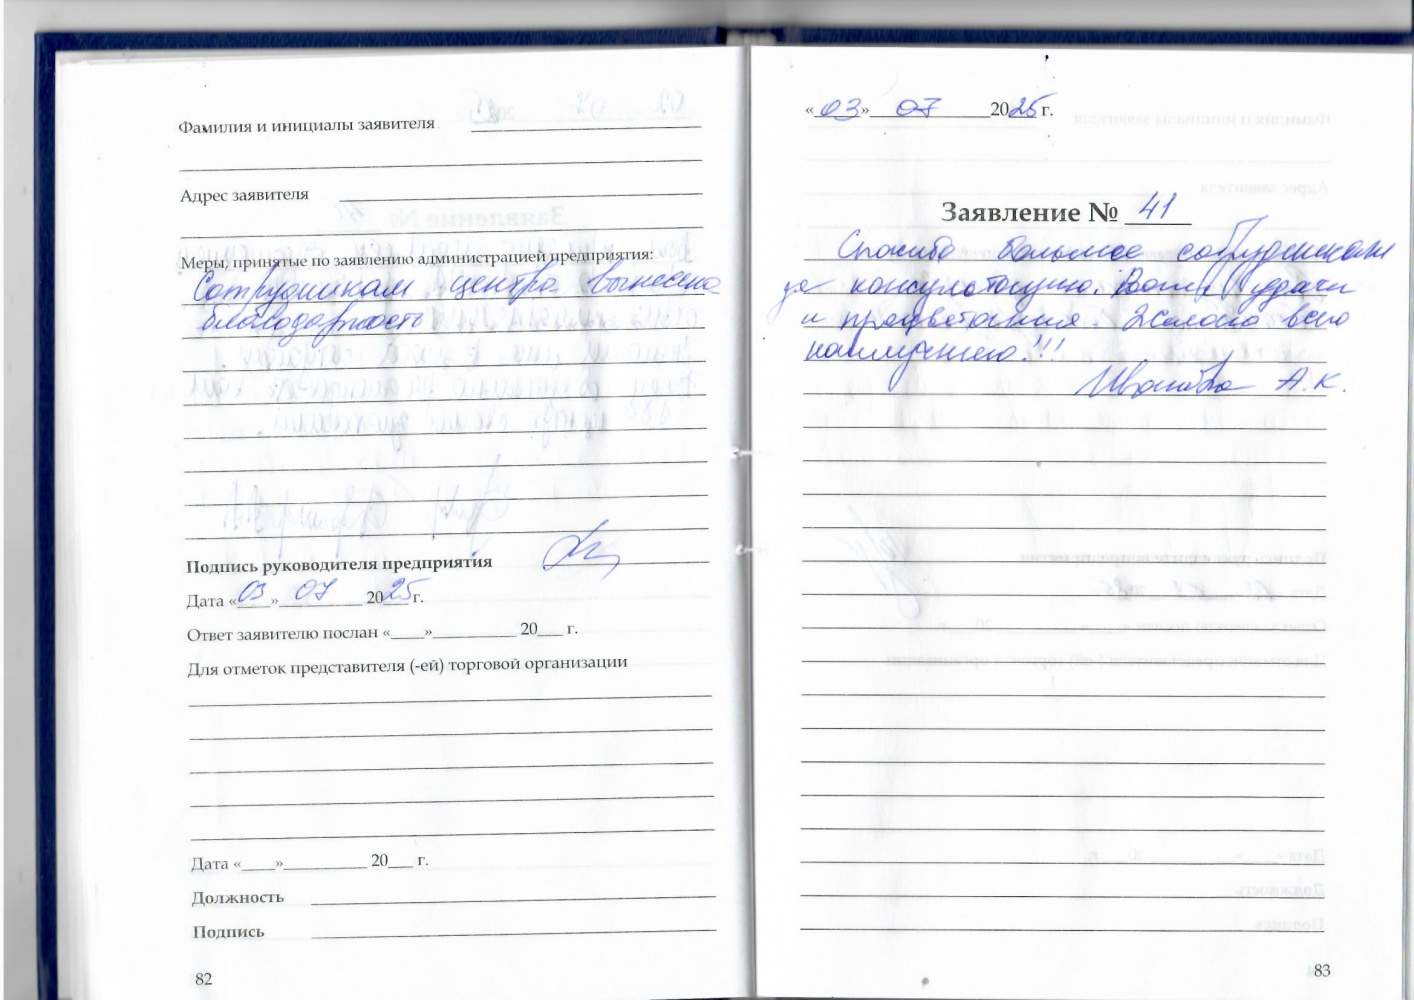 Фамилия и инициалы заявителя
Адрес заявителя
Меры, принятые по заявлению администрацией предприятия:
Сотрудникам центра вынесена
благодарность
Подпись руководителя предприятия
Дата «03» 07 2025 г.
Ответ заявителю послан «____»__________ 20___ г.
Для отметок представителя (-ей) торговой организации
Дата «____»__________ 20___ г.
Должность
Подпись
82
«03» 07 2025 г.
Заявление № 41
Спасибо большое сотрудникам
за консультацию. Вам удачи
и процветания. Желаю всего
наилучшего!!!
А.К.
83